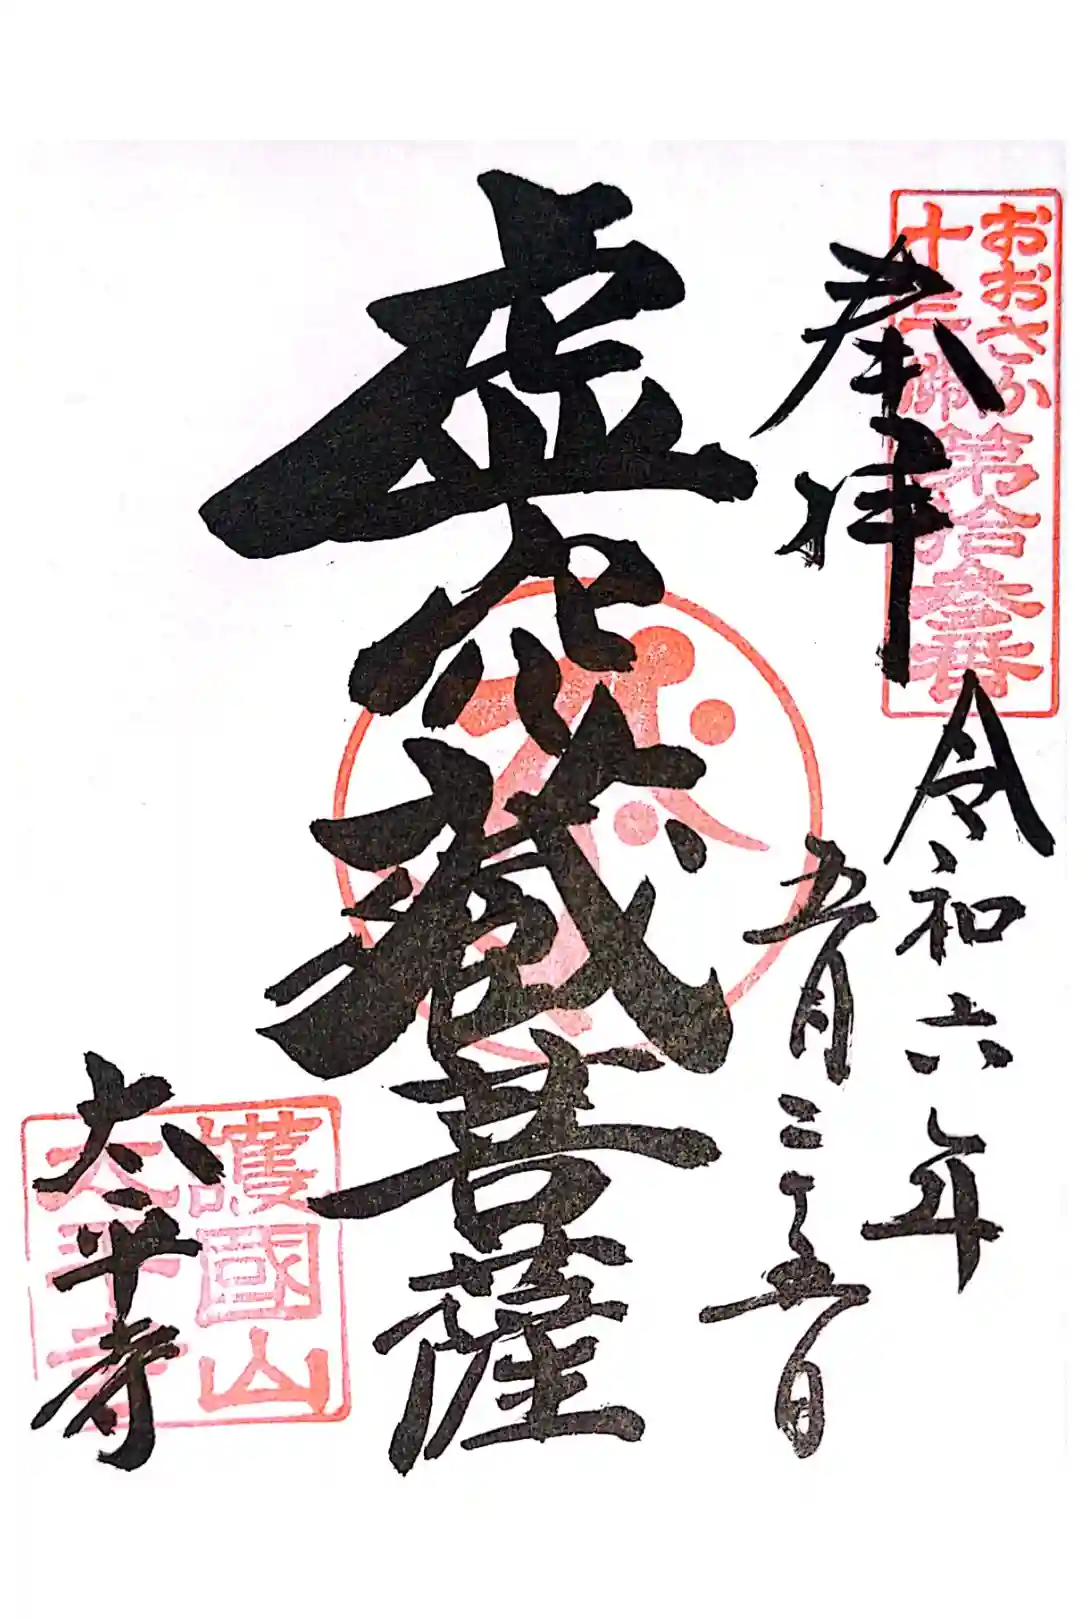 おおさか
十三佛第拾参番
奉拝
令和六年
五月二十五日
虚空蔵菩薩
護國山
太平寺
太平寺